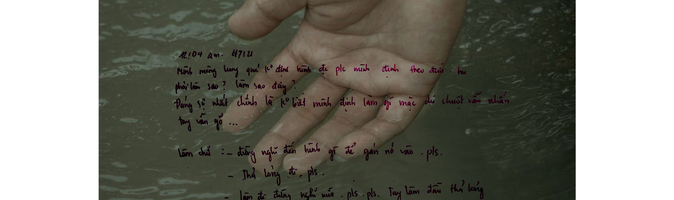 12:04 am. 4721
Mình mông lung quá k° định hình đc plc mình định theo đuổi. hu
phải làm sao? làm sao đây?
Đáng sợ nhất chính là k° biết mình định làm gì mặc dù chuột vẫn nhấn
tay vẫn gõ ...
làm chủ : - đừng nghĩ đến hình gì để gán nó vào. pls.
- Thả lỏng đi. pls
- làm đi đừng nghĩ nữa. pls. pls. Tay làm đầu thả lỏng